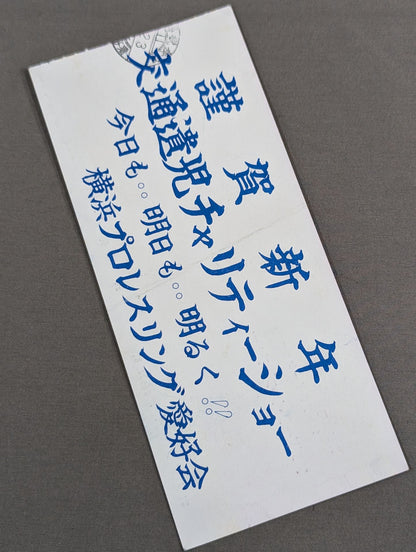 謹賀新年
交通遺児チャリティーショー
今日も…明日も…明るく!!
横浜プロレスリング愛好会